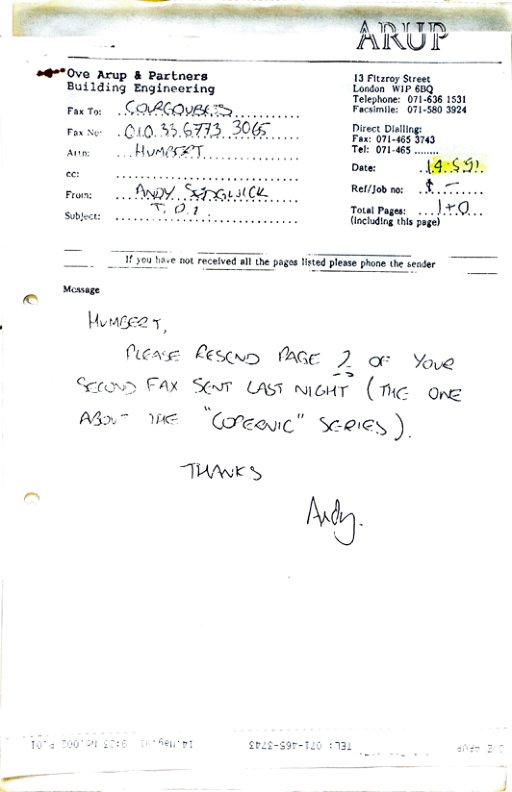 ARUP
Ove Arup & Partners
Building Engineering
13 Fitzroy Street
London W1P 6BQ
Telephone: 071-636 1531
Facsimile: 071-580 3924
Direct Dialling:
Fax: 071-465 3743
Tel: 071-465 ........
Fax To:
Fax No: 010.33.6773 3065
Attn: HUMBERT
cc:
From: ANDY SEDGWICK
Subject:
Date: 14.5.91
Ref/Job no:
Total Pages: 1+0
(including this page)
If you have not received all the pages listed please phone the sender
Message
HUMBERT,
PLEASE RESEND PAGE 2 OF YOUR
SECOND FAX SENT LAST NIGHT (THE ONE
ABOUT THE "COPERNIC" SERIES).
THANKS
Andy.
14.May.91 9:23 No.002 P.01
TEL: 071-465-3743